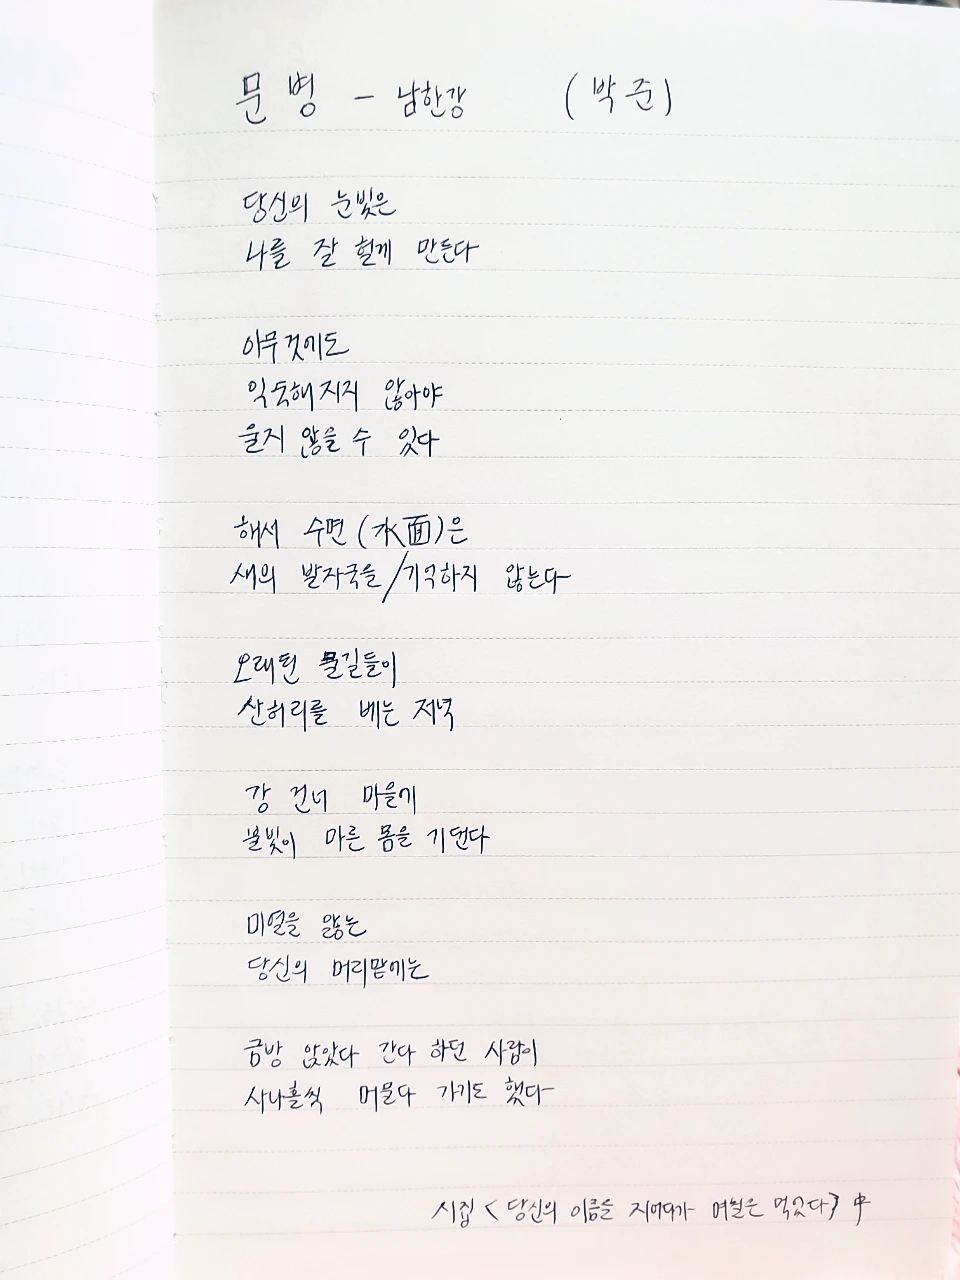 문병 - 남한강 (박준)
당신의 눈빛은
나를 잘 헐게 만든다
아무것에도
익숙해지지 않아야
울지 않을 수 있다
해서 수면(水面)은
새의 발자국을/기억하지 않는다
오래된 물길들이
산허리를 베는 저녁
강 건너 마을에
불빛이 마른 몸을 기댄다
미열을 앓는
당신의 머리맡에는
금방 앉았다 간다 하던 사람이
사나흘씩 머물다 가기도 했다
시집 <당신의 이름을 지어다가 며칠은 먹었다> 中